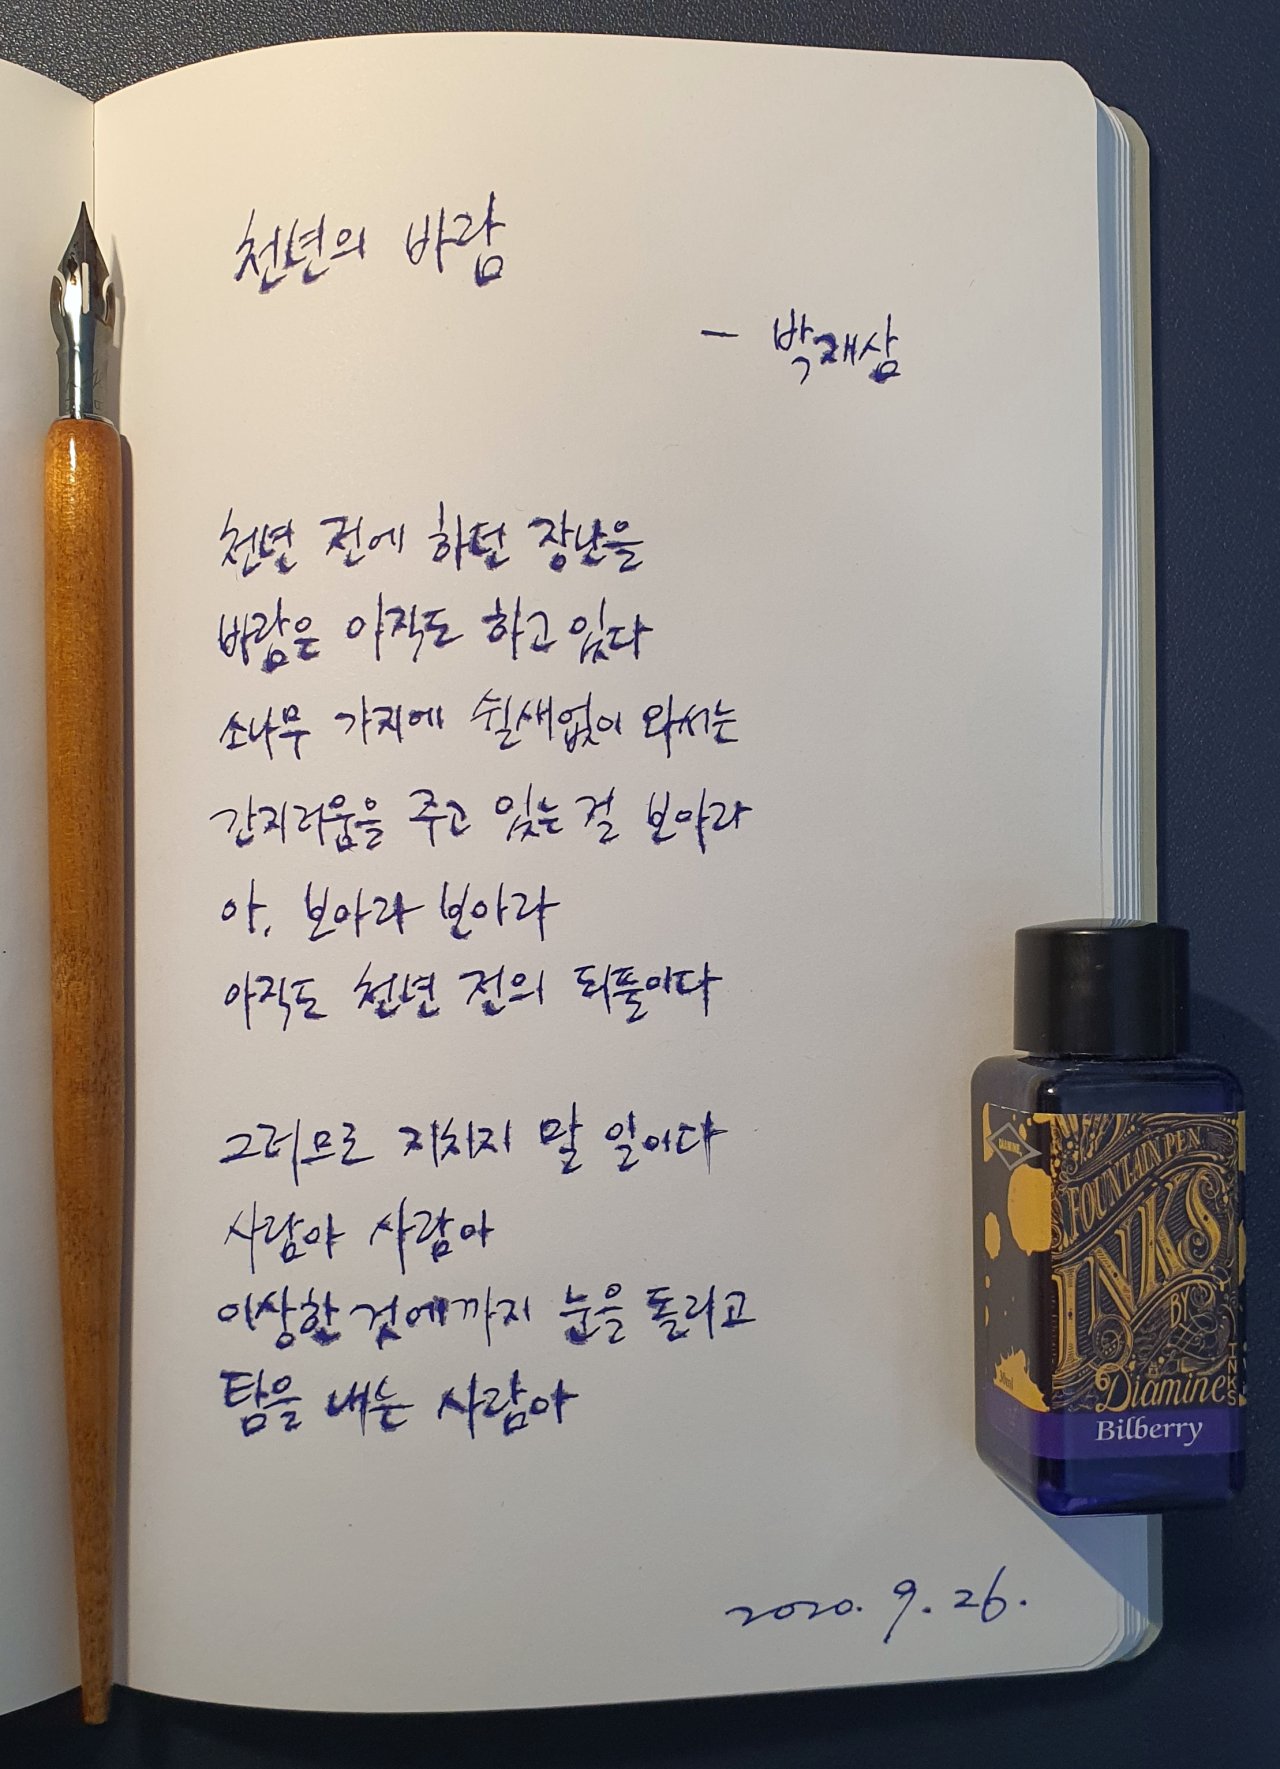 천년의 바람
- 박재삼
천년 전에 하던 장난을
바람은 아직도 하고 있다
소나무 가지에 쉴새없이 와서는
간지러움을 주고 있는 걸 보아라
아, 보아라 보아라
아직도 천년 전의 되풀이다
그러므로 지치지 말 일이다
사람아 사람아
이상한 것에까지 눈을 돌리고
탐을 내는 사람아
2020. 9. 26.
DIAMINE
FOUNTAIN PEN
INKS
BY
Diamine
30ml
Bilberry
INKS